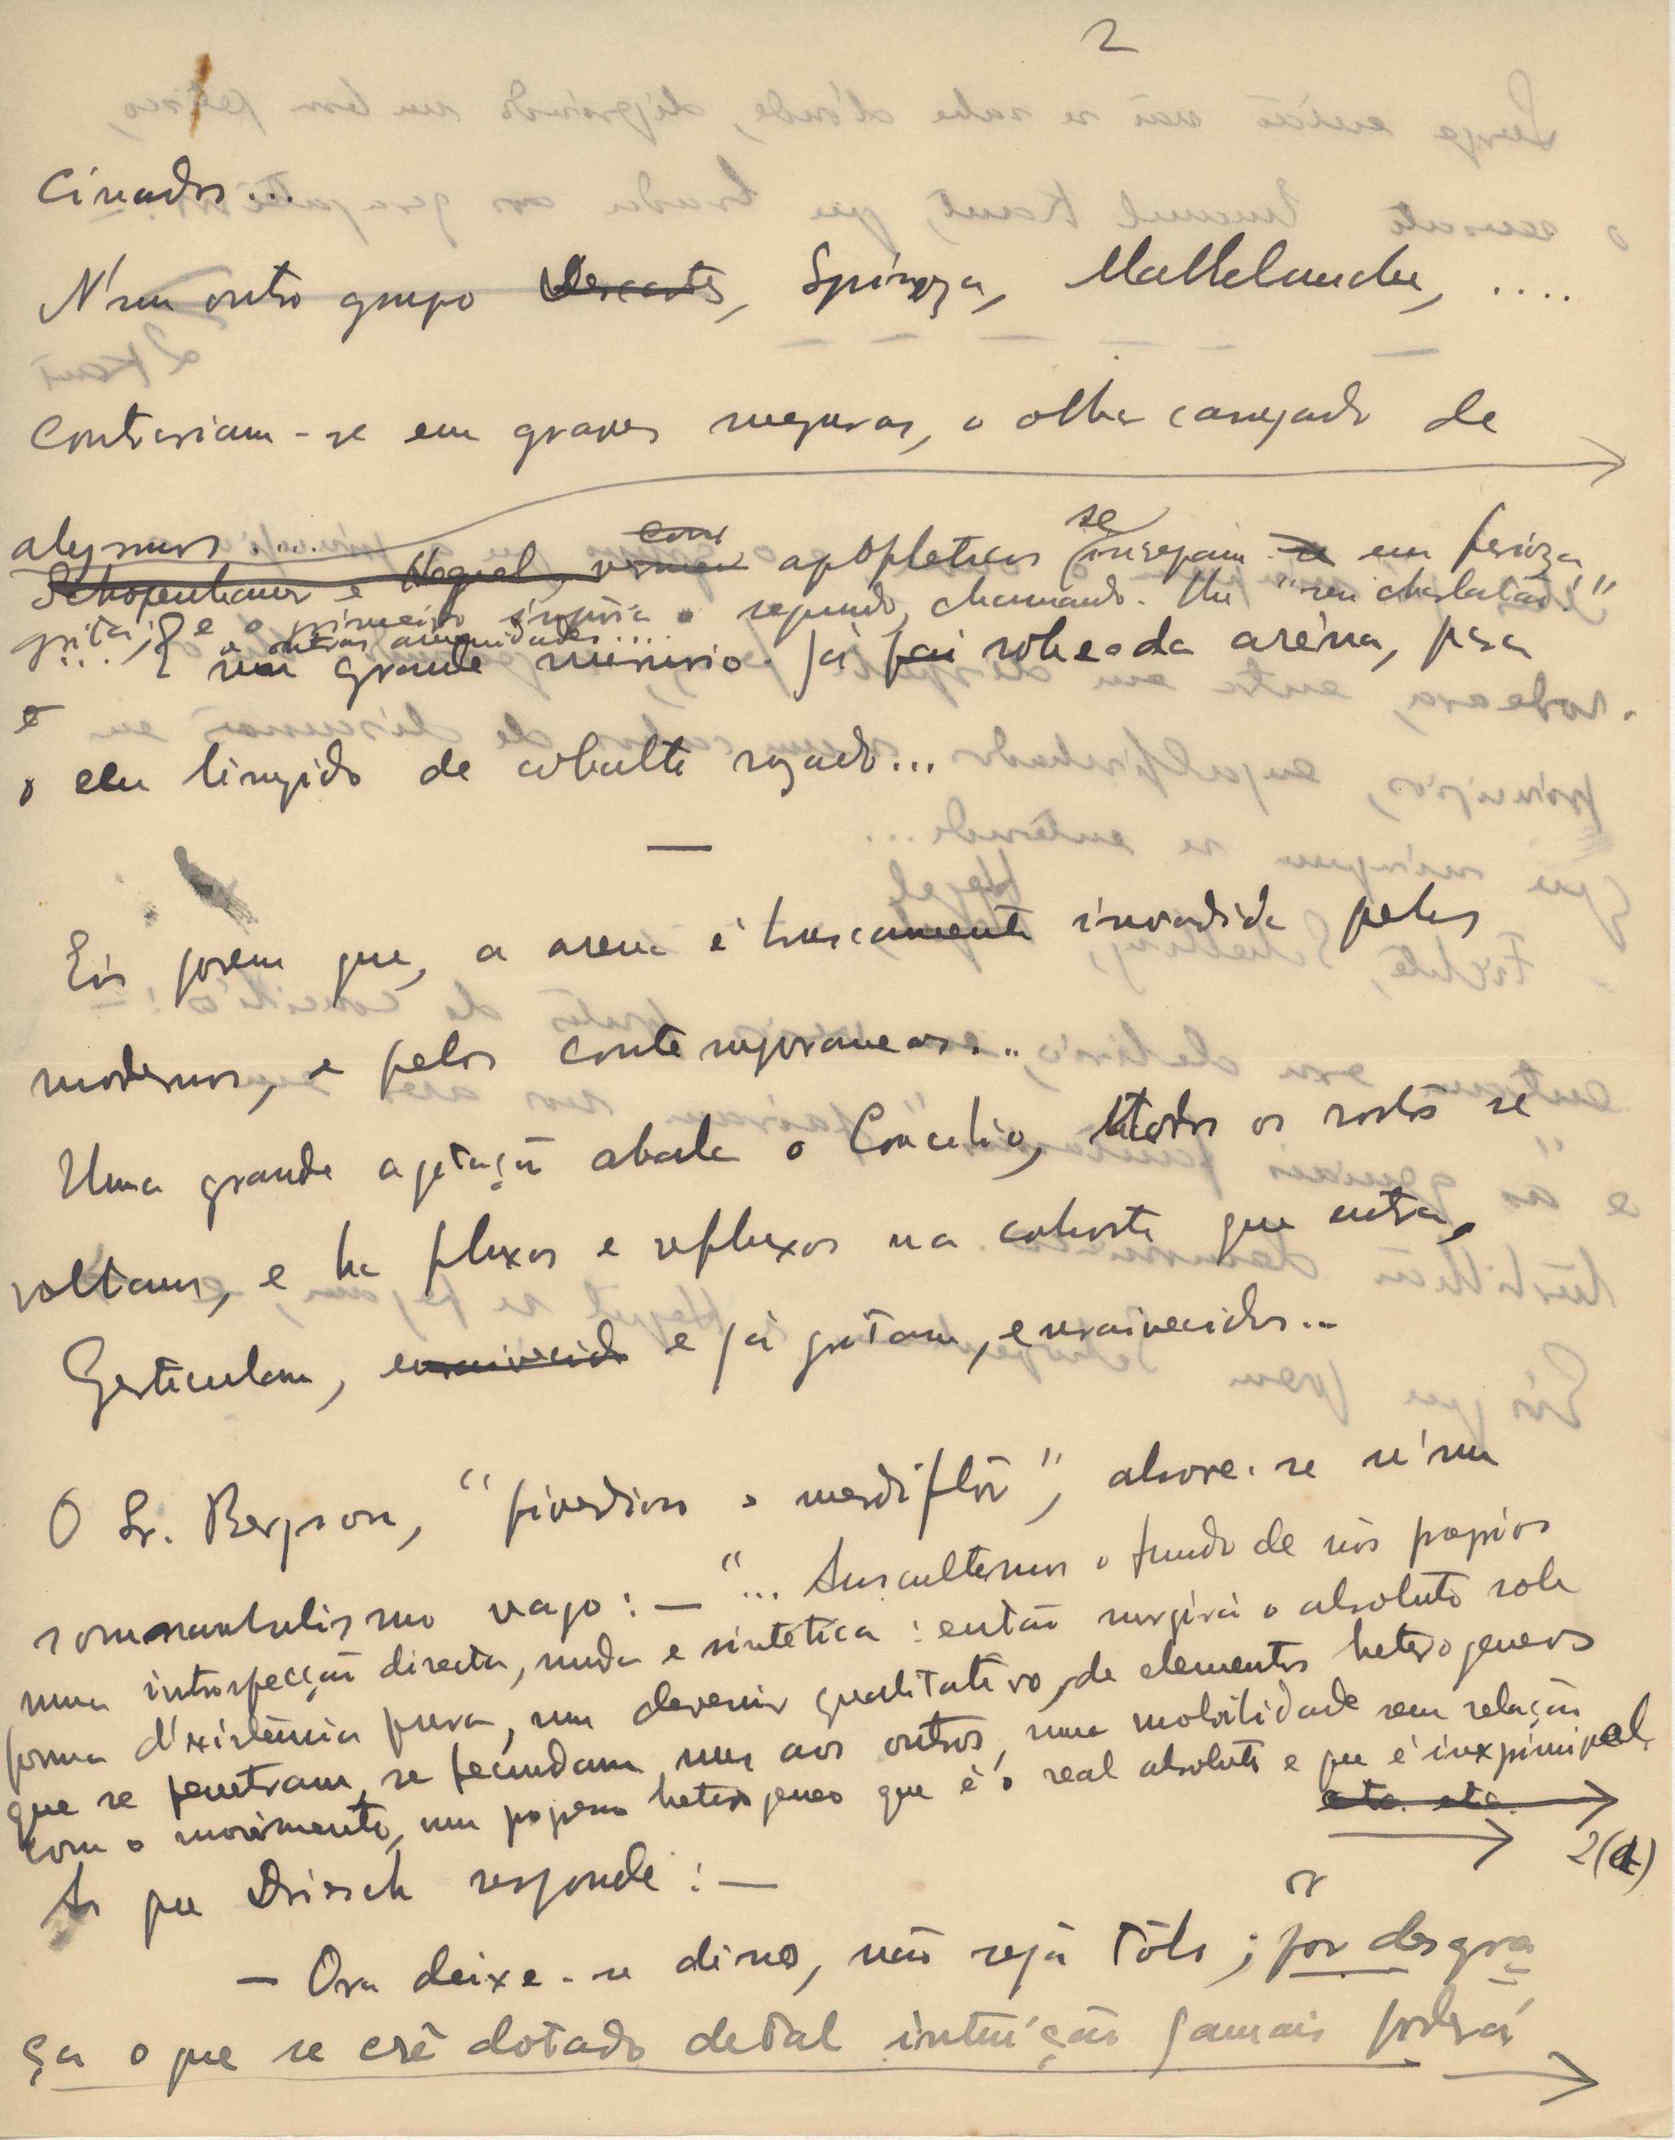 2
cinados...
N'um outro grupo Descartes, Spinoza, Mallebranche, ....
Contrariam-se em graves
o olhar carregado de
abysmos.....
Schopenhauer e Hegel, com apopleticos se em feroz
grita; e o primeiro o segundo, chamando-lhe "seu charlatão!"
... e outras amenidades....
E um grande murmurio já sobe da aréna, para
o céu tingido de cobalto rozado...
—
Eis porem que, a arena é bruscamente invadida pelos
modernos, e pelos contemporaneos...
Uma grande agitação abala o Concilio, todos os rostos se
voltam, e ha fluxos e refluxos na cohorte que entra.
Gesticulam, enraivecidos e já gritam, enraivecidos...
O Sr. Bergson, absorve-se n'um
somnambulismo vago: — "... Auscultemos o fundo de nós proprios
numa introspecção directa, muda e sintética: então surgirá o absoluto sob
forma d'existência pura, um devenir qualitativo, de elementos heterogeneos
que se penetram, se fecundam uns aos outros, uma mobilidade sem relação
com o movimento, um progresso heterogeneo que é o real absoluto e que é inexprimivel.
etc. etc.
2(a)
Ao que Driesch responde: —
— Ora deixe-se disso, não seja tôlo; por desgra
ça o que se crê dotado de tal intuição jamais poderá